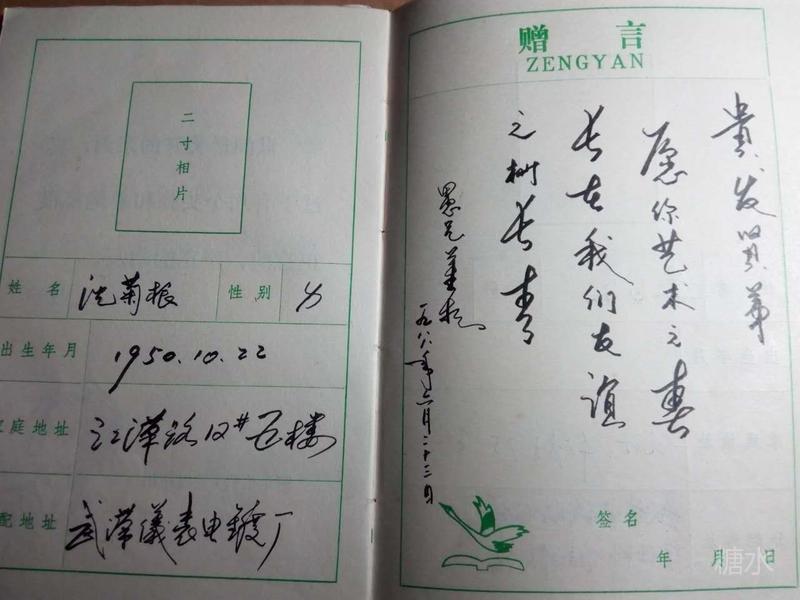 二寸相片
姓名 沈菊根 性别 女
出生年月 1950.10.22
家庭地址 江汉路12# 五楼
配地址 武汉仪表电镀厂
赠言
ZENGYAN
贵发贤弟
愿你艺术之春
长在我们友谊
之树长青
愚兄菊根
一九八六年六月二十三日
签名
年 月 日
糖水